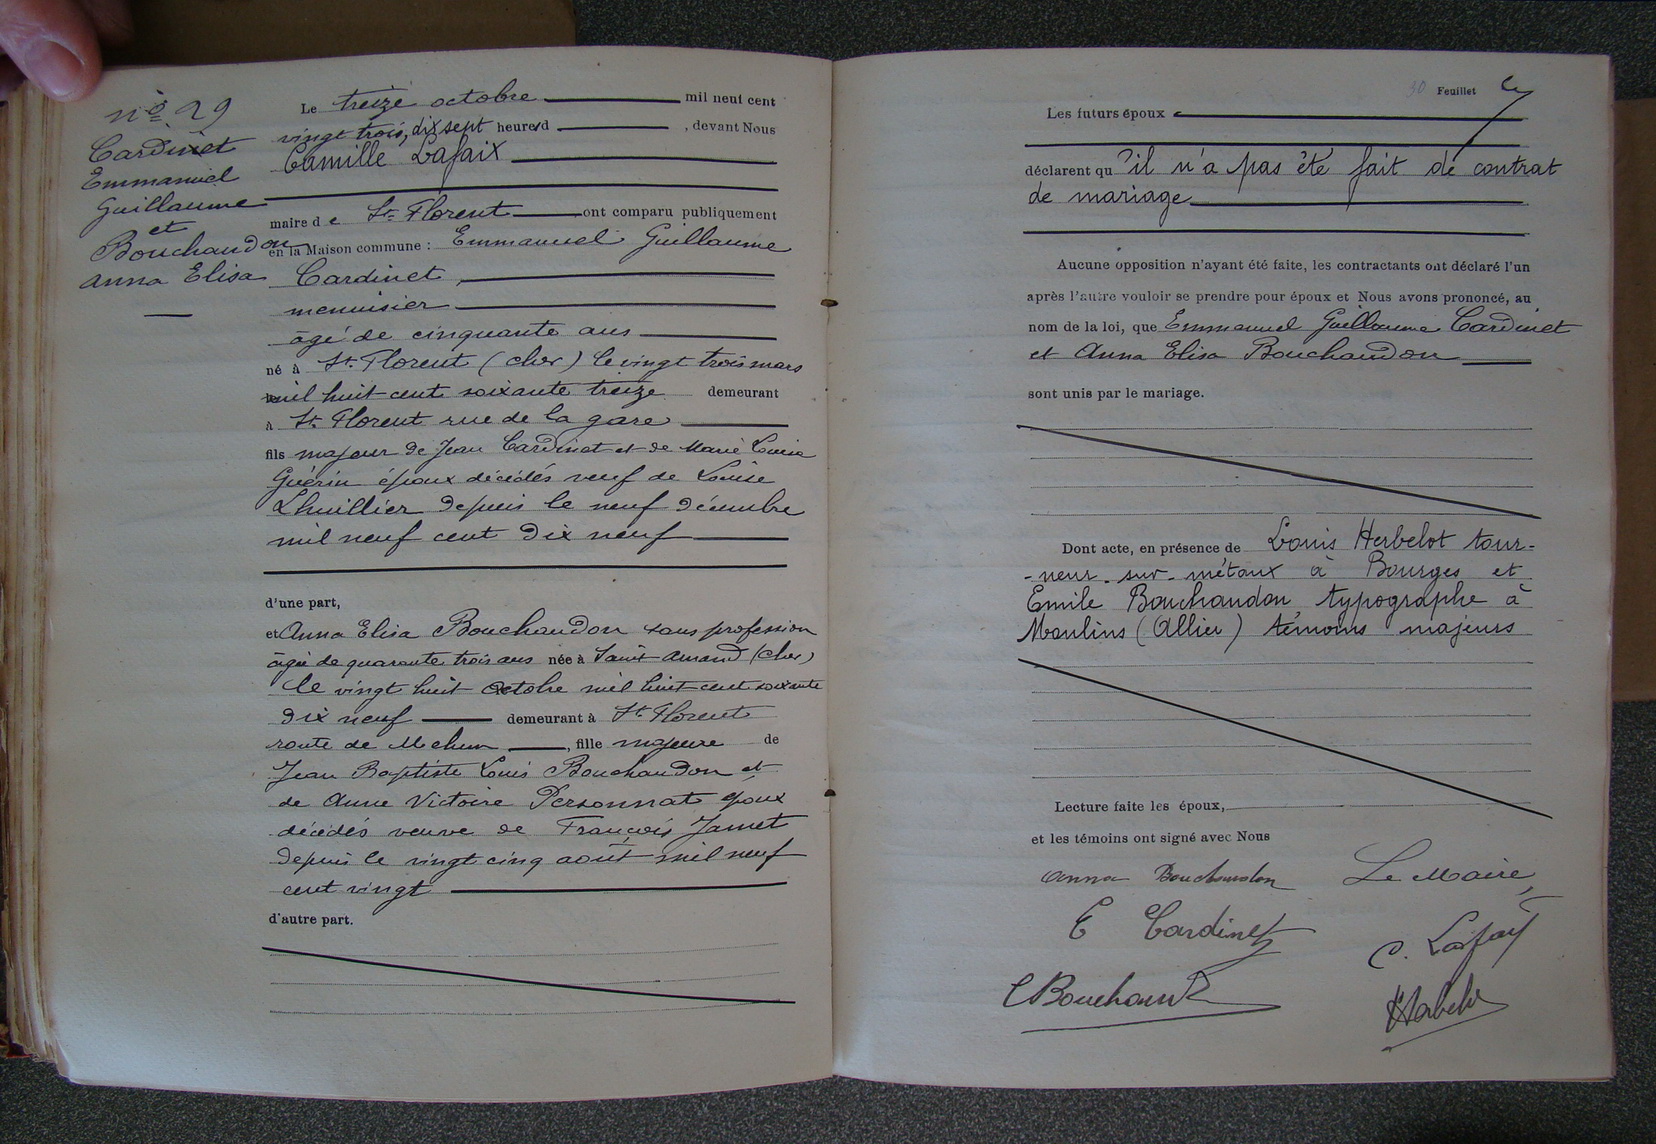 n° 29
Cardinet
Emmanuel
Guillaume
et
Bouchaudon
Anna Elisa
Le treize octobre mil neuf cent
vingt trois, dix sept heures d , devant Nous
Camille Lafaix
maire de St Florent ont comparu publiquement
en la Maison commune : Emmanuel Guillaume
Cardinet,
menuisier
âgé de cinquante ans
né à St Florent (cher) le vingt trois mars
mil huit cent soixante treize demeurant
à St Florent rue de la gare
fils majeur de Jean Cardinet et de Marie Louise
Guérin époux décédés veuf de Louise
Lhuillier depuis le neuf décembre
mil neuf cent dix neuf
d'une part,
et Anna Elisa Bouchaudon sans profession
âgée de quarante trois ans née à Saint Amand (Cher)
le vingt huit Octobre mil huit cent soixante
dix neuf demeurant à St Florent
route de Mehun , fille majeure de
Jean Baptiste Louis Bouchaudon et
de Anne Victoire Personnat époux
décédés veuve de François Jamet
depuis le vingt cinq août mil neuf
cent vingt
d'autre part.
30 Feuillet
Les futurs époux
déclarent qu'il n'a pas été fait de contrat
de mariage
Aucune opposition n'ayant été faite, les contractants ont déclaré l'un
après l'autre vouloir se prendre pour époux et Nous avons prononcé, au
nom de la loi, que Emmanuel Guillaume Cardinet
et Anna Elisa Bouchaudon
sont unis par le mariage.
Dont acte, en présence de Louis Herbelot tour-
-neur sur métaux à Bourges et
Emile Bouchaudon, typographe à
Moulins (Allier) témoins majeurs
Lecture faite les époux,
et les témoins ont signé avec Nous
Anna Bouchaudon Le Maire,
E Cardinet
C. Lafaix
E Bouchaud
Herbelot